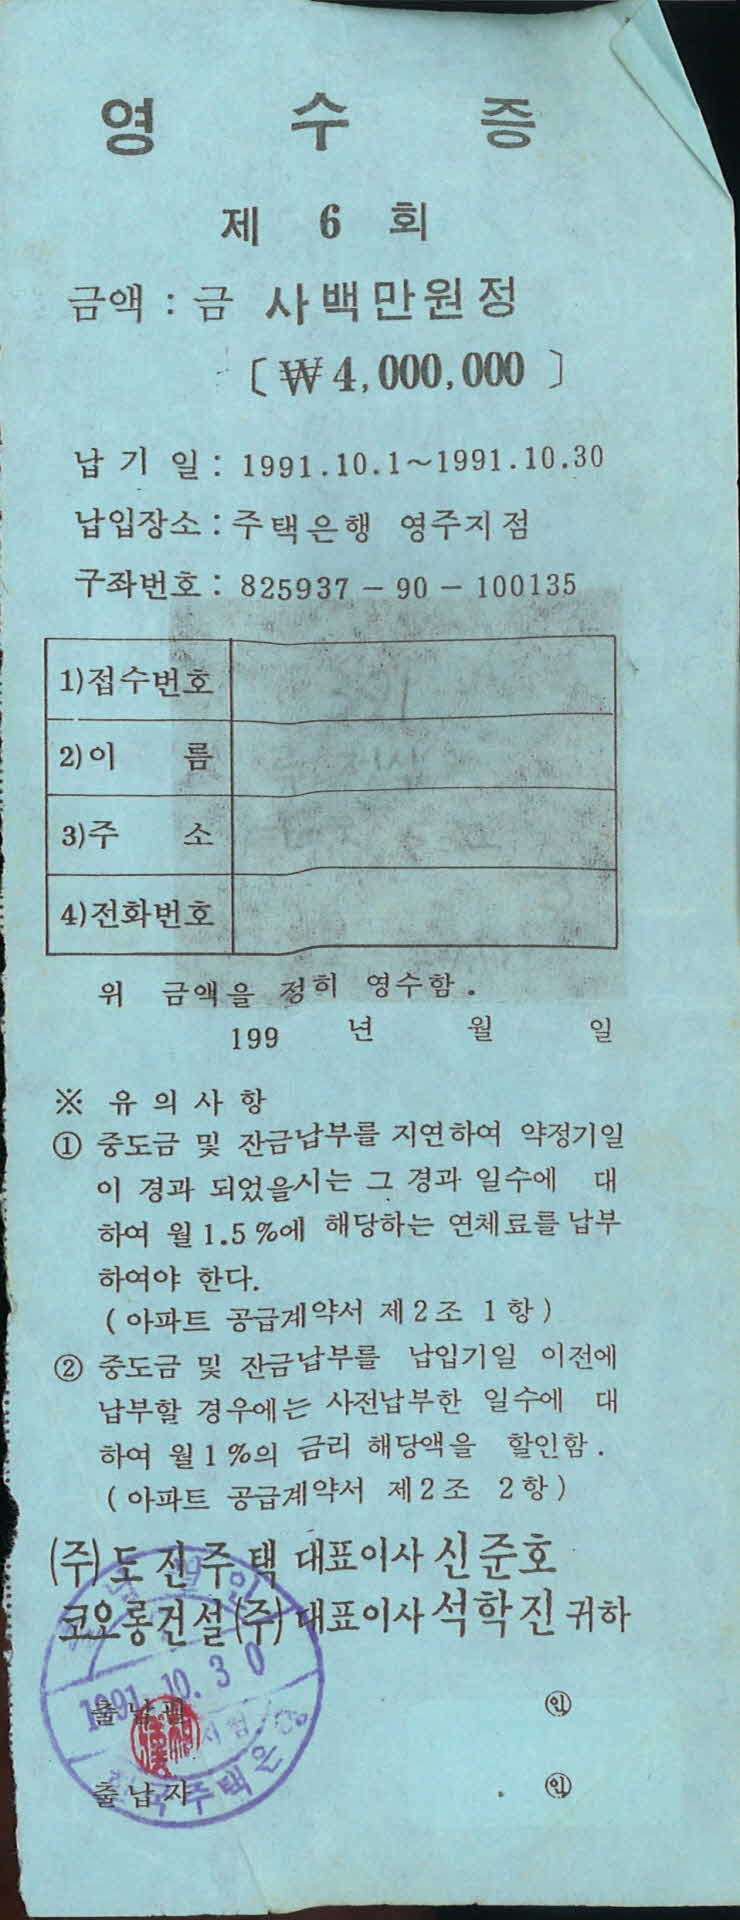 영 수 증
제 6 회
금액 : 금 사백만원정
〔 ₩4,000,000 〕
납 기 일 : 1991.10.1～1991.10.30
납입장소 : 주택은행 영주지점
구좌번호 : 825937 - 90 - 100135
1)접수번호
2)이 름
3)주 소
4)전화번호
위 금액을 정히 영수함.
199 년 월 일
※ 유 의 사 항
① 중도금 및 잔금납부를 지연하여 약정기일
이 경과 되었을시는 그 경과 일수에 대
하여 월 1.5 %에 해당하는 연체료를 납부
하여야 한다.
( 아파트 공급계약서 제2조 1항 )
② 중도금 및 잔금납부를 납입기일 이전에
납부할 경우에는 사전납부한 일수에 대
하여 월 1 %의 금리 해당액을 할인함.
( 아파트 공급계약서 제2조 2항 )
(주) 도진주택 대표이사 신준호
코오롱건설 (주) 대표이사 석학진 귀하
1991. 10. 3 0
출납필 ㊞
출납자 ㊞
주택은행